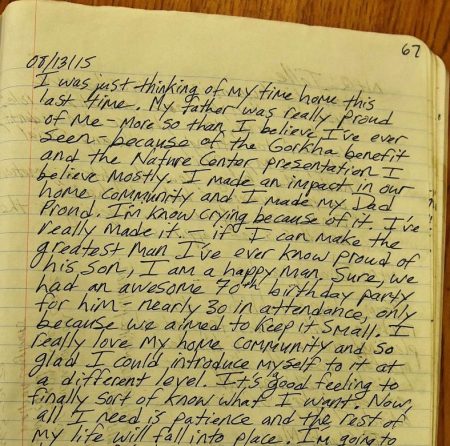 67
08/13/15
I was just thinking of my time home this
last time. My father was really proud
of me - more so than I believe I've ever
seen - because of the Gorkha benefit
and the Nature Center presentation I
believe mostly. I made an impact in our
home community and I made my Dad
proud. I'm know crying because of it. I've
really made it - if I can make the
greatest man I've ever know proud of
his son, I am a happy man. Sure, we
had an awesome 70th birthday party
for him - nearly 30 in attendance, only
because we aimed to keep it small. I
really love my home community and so
glad I could introduce myself to it at
a different level. It's a good feeling to
finally sort of know what I want. Now,
all I need is patience and the rest of
my life will fall into place. I'm going to